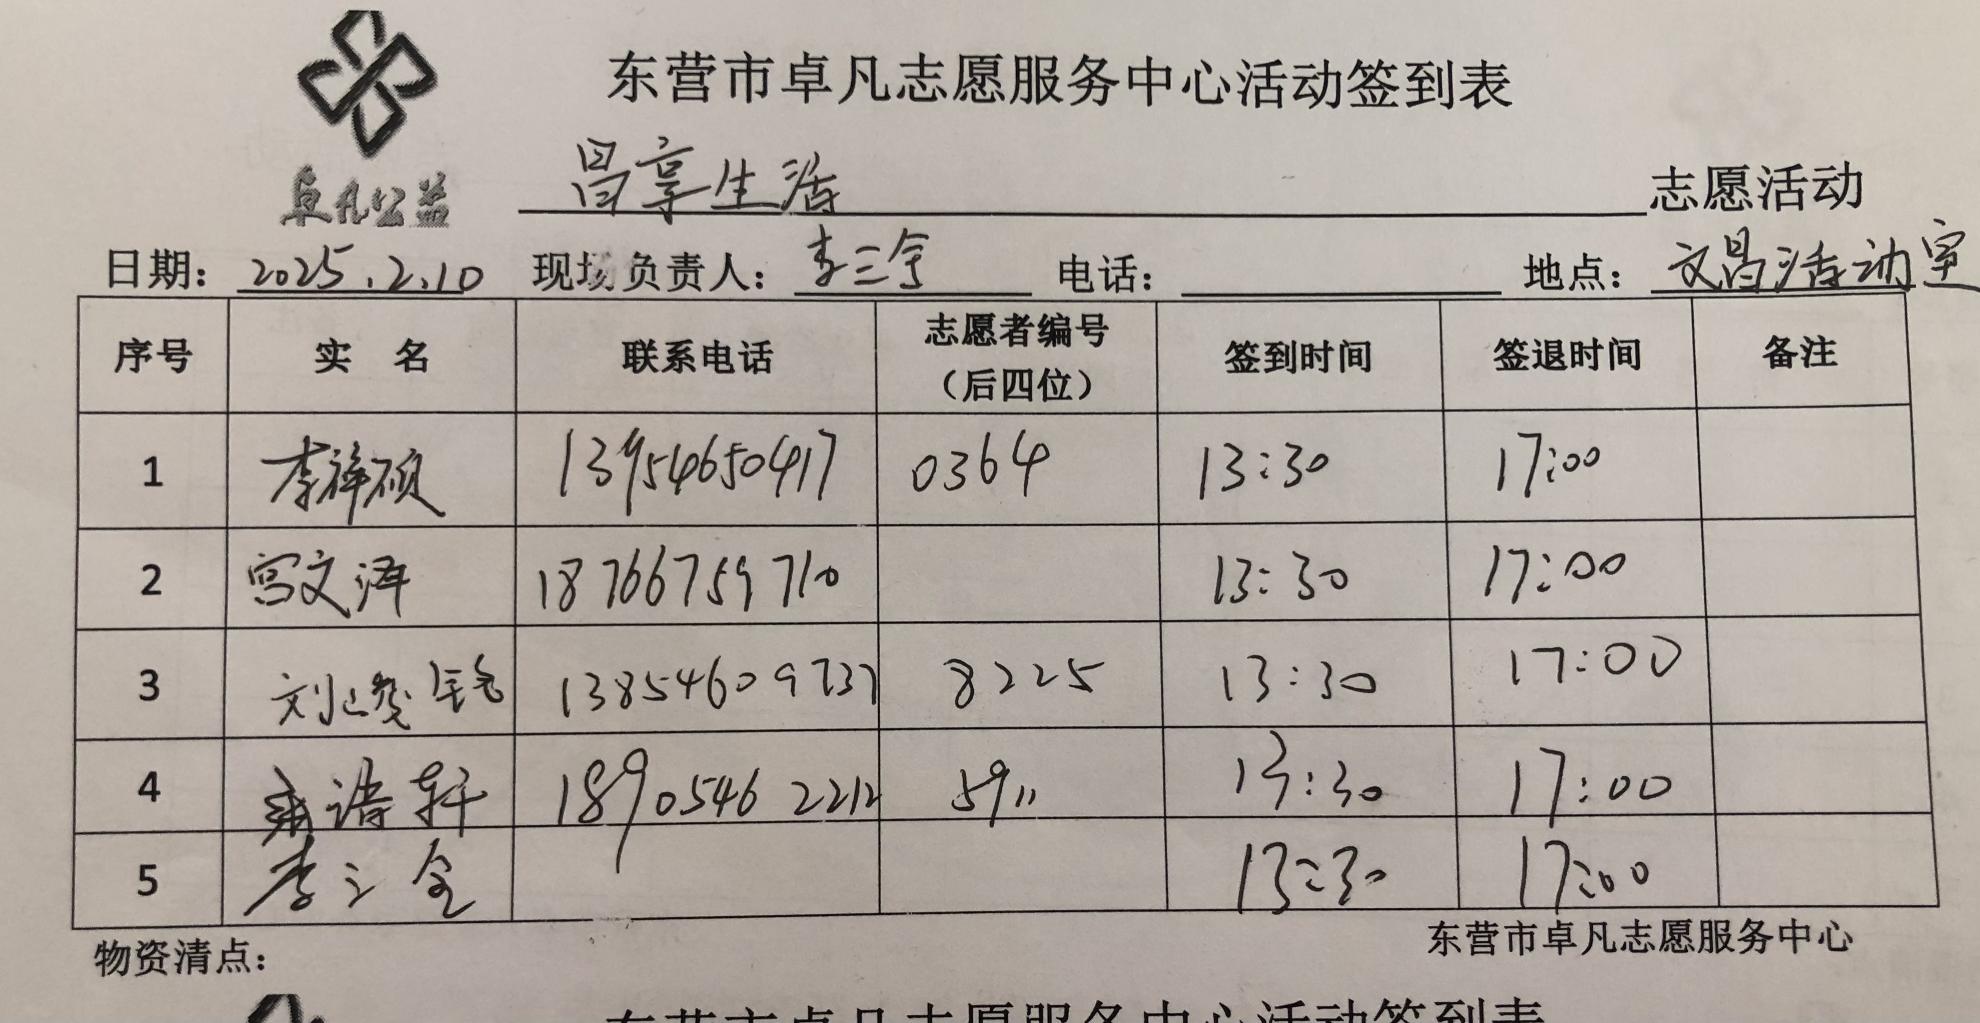 东营市卓凡志愿服务中心活动签到表
卓凡公益
昌享生活 志愿活动
日期: 2025.2.10 现场负责人: 李三全 电话: 地点: 文昌活动室
序号 实 名 联系电话 志愿者编号（后四位） 签到时间 签退时间 备注
1 李祥硕 13954650417 0364 13:30 17:00
2 宫文泽 18766759710 13:30 17:00
3 刘 13854609737 8225 13:30 17:00
4 轩 18905462212 5911 13:30 17:00
5 李三全 13:30 17:00
物资清点: 东营市卓凡志愿服务中心
东营市卓凡志愿服务中心活动签到表